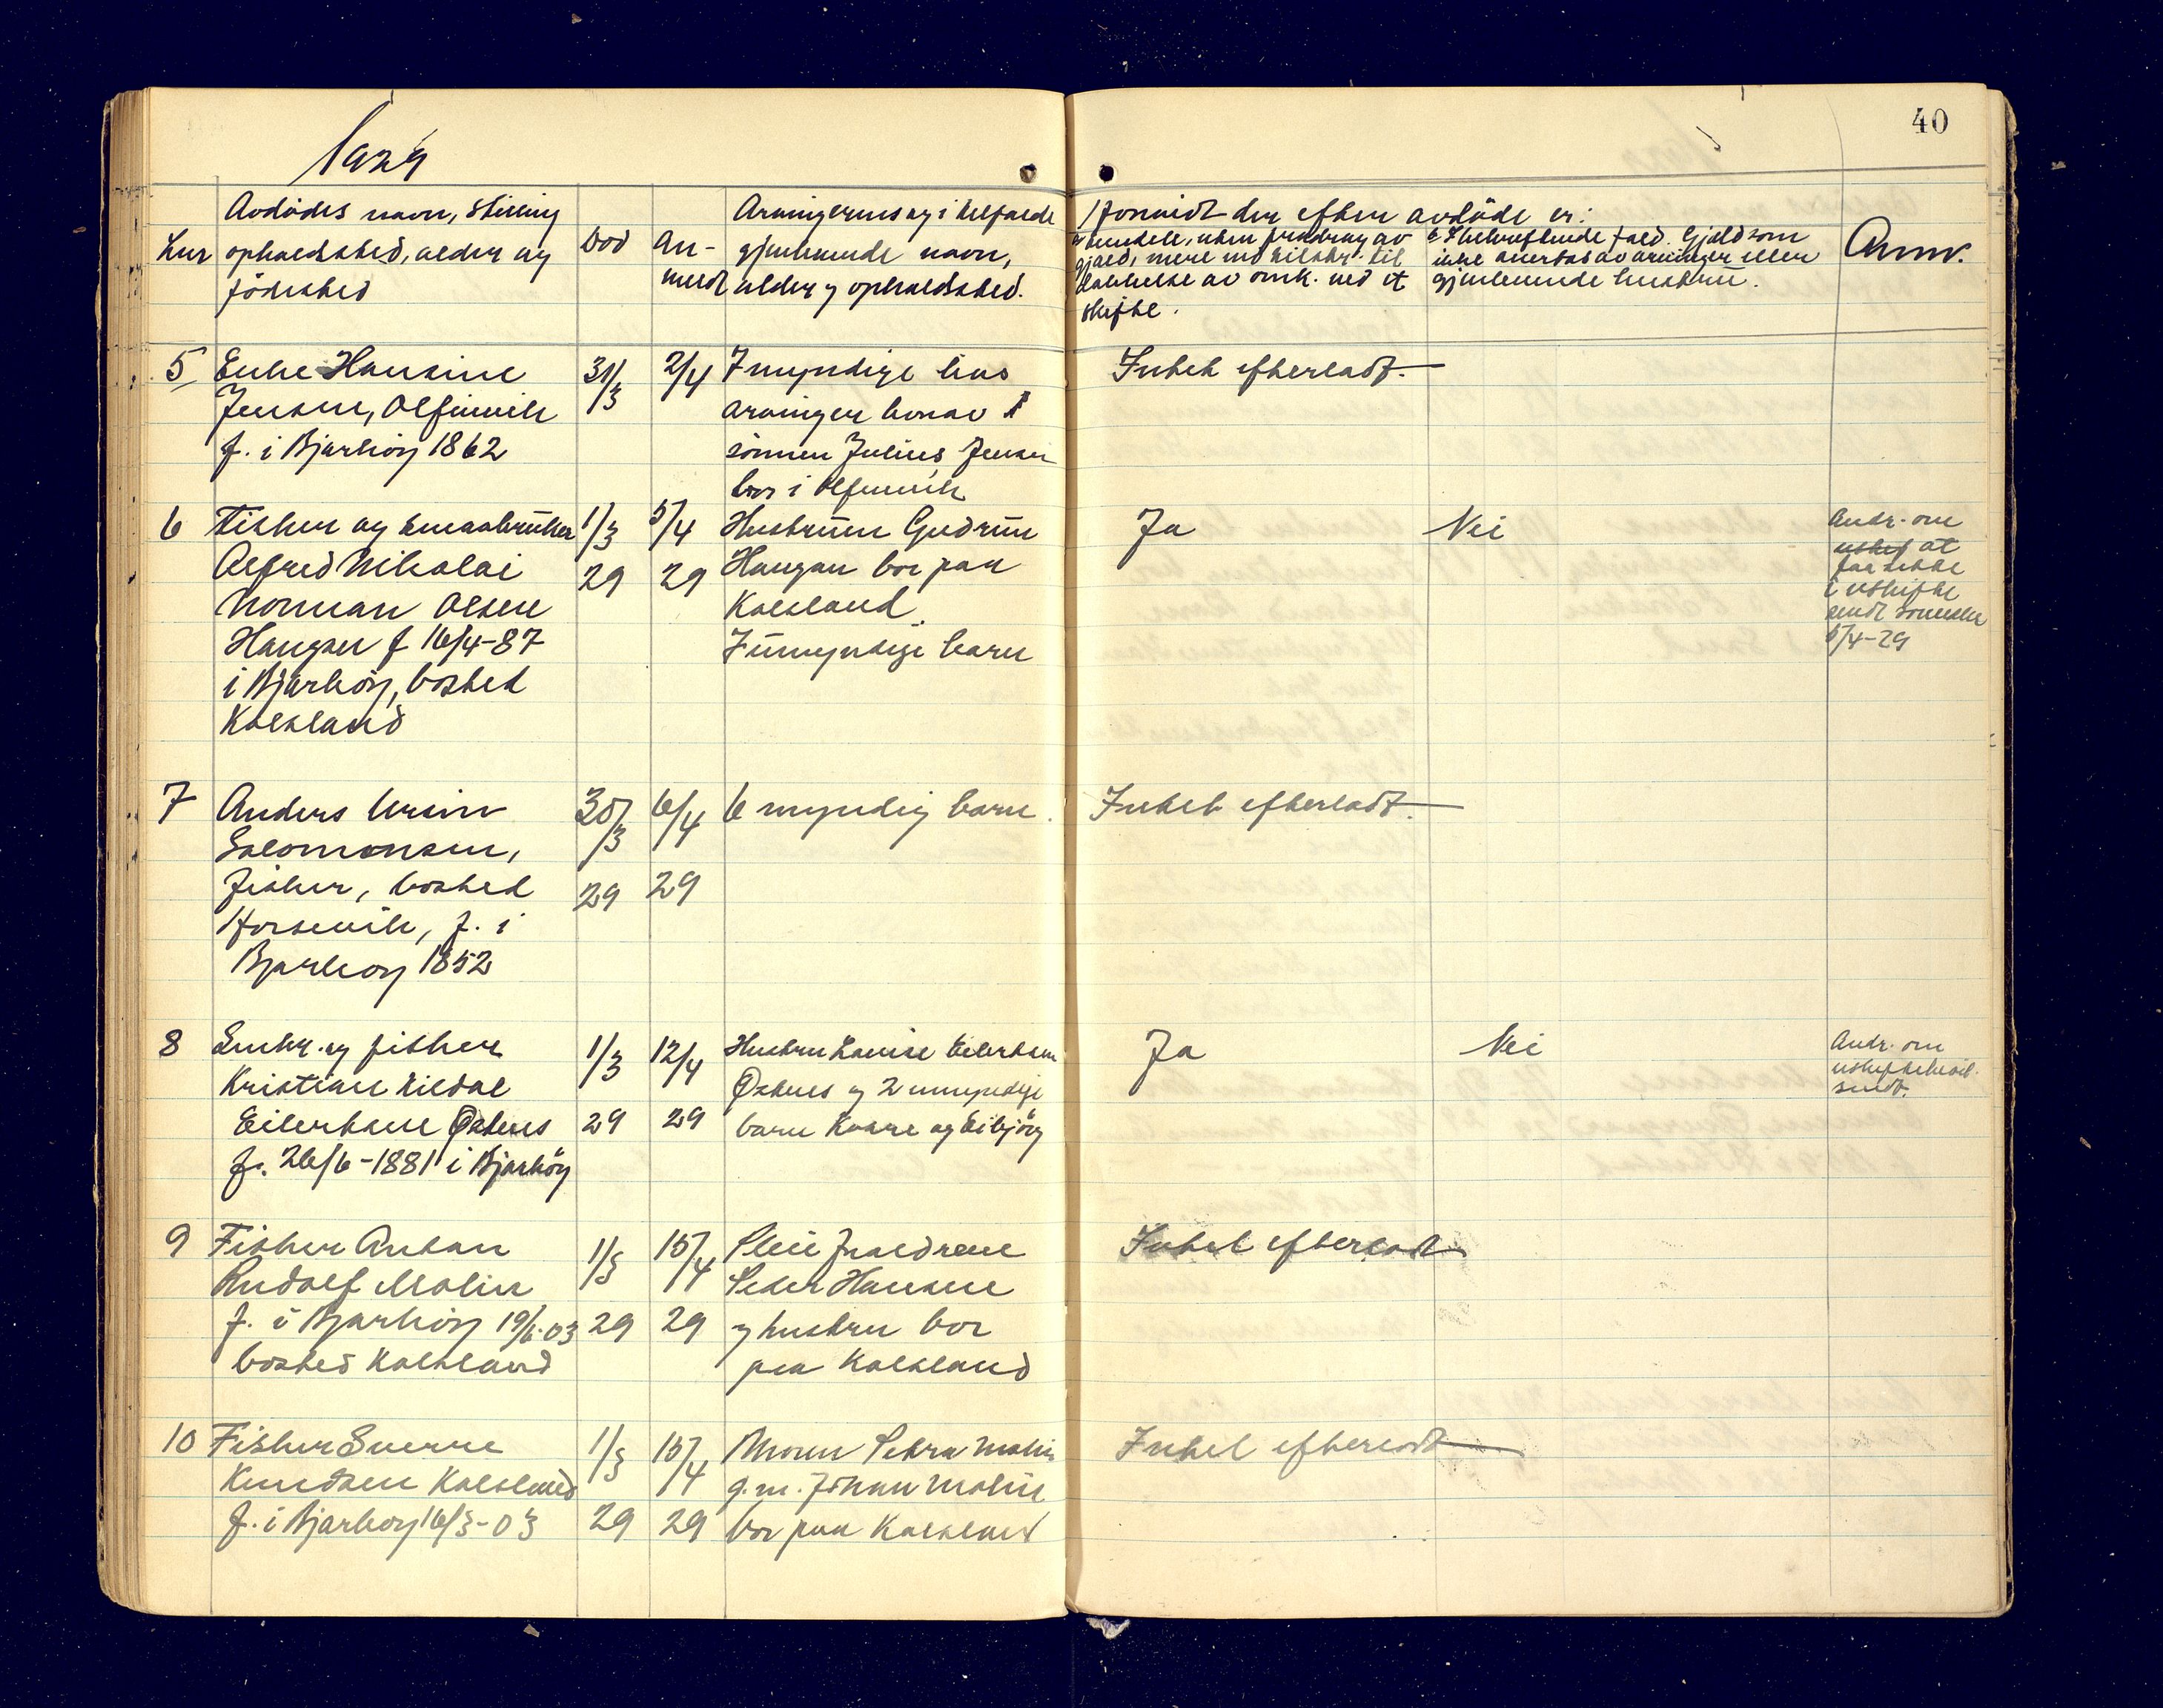 40
1929
Lnr
Avdödes navn, stilling
opholdssted, alder og
födested
Död
An-
meldt
Arvingernes og i tilfælde
gjenlevende navn,
alder og opholdssted.
Formidt der efter avdöde er:
a hendele, uten fradrag av
gjæld, mere end tilstr. til
dækkelse av omk. ved et
skifte.
b I bekræftende fald. Gjæld som
ikke overtas av arvinger eller
gjenlevende hustru.
Anm.
5 Enke Hansine
Jensen, Olfinvik
f. i Bjarköy 1862
31/3
2/4
7 myndige livs
arvinger hvorav 1
sönnen Julius Jensen
bor i Olfinvik
Intet efterladt.
6 Fisker og smaabruker
Alfred Nikolai
Norman Olsen
Haugan f 16/4-87
i Bjarköy, bosted
Kalsland
1/3
29
5/4
29
Hustruen Gudrun
Haugan bor paa
Kalsland.
7 umyndige barn
Ja
Nei
Andr. om
at
faa sitte
i uskifte
sendt
5/4-29
7 Anders Ursin
Salomonsen,
Fisker, bosted
Horsevik, f. i
Bjarköy 1852
30/3
29
6/4
29
6 myndig barn.
Intet efterladt.
8 Smbr. og fisker
Kristian Hildal
Eilertsen Östnes
f. 26/6-1881 i Bjarköy
1/3
29
12/4
29
Hustru Lovise Eilertsen
Östnes og 2 umyndige
barn Kaare og Eibjörg
Ja
Nei
Andr. om
uskiftebevil.
sendt.
9 Fisker Anton
Rudolf Molin
f. i Bjarköy 19/6-03
bosted Kalsland
1/3
29
15/4
29
Pleieforældrene
Peder Hansen
og hustru bor
paa Kalsland
Intet efterladt
10 Fisker Sverre
Knudsen Kalsland
f. i Bjarkoy 16/3-03
1/3
29
15/4
29
Moren Petra Molin
g.m. Johan Molin
bor paa Kalsland
Intet efterladt